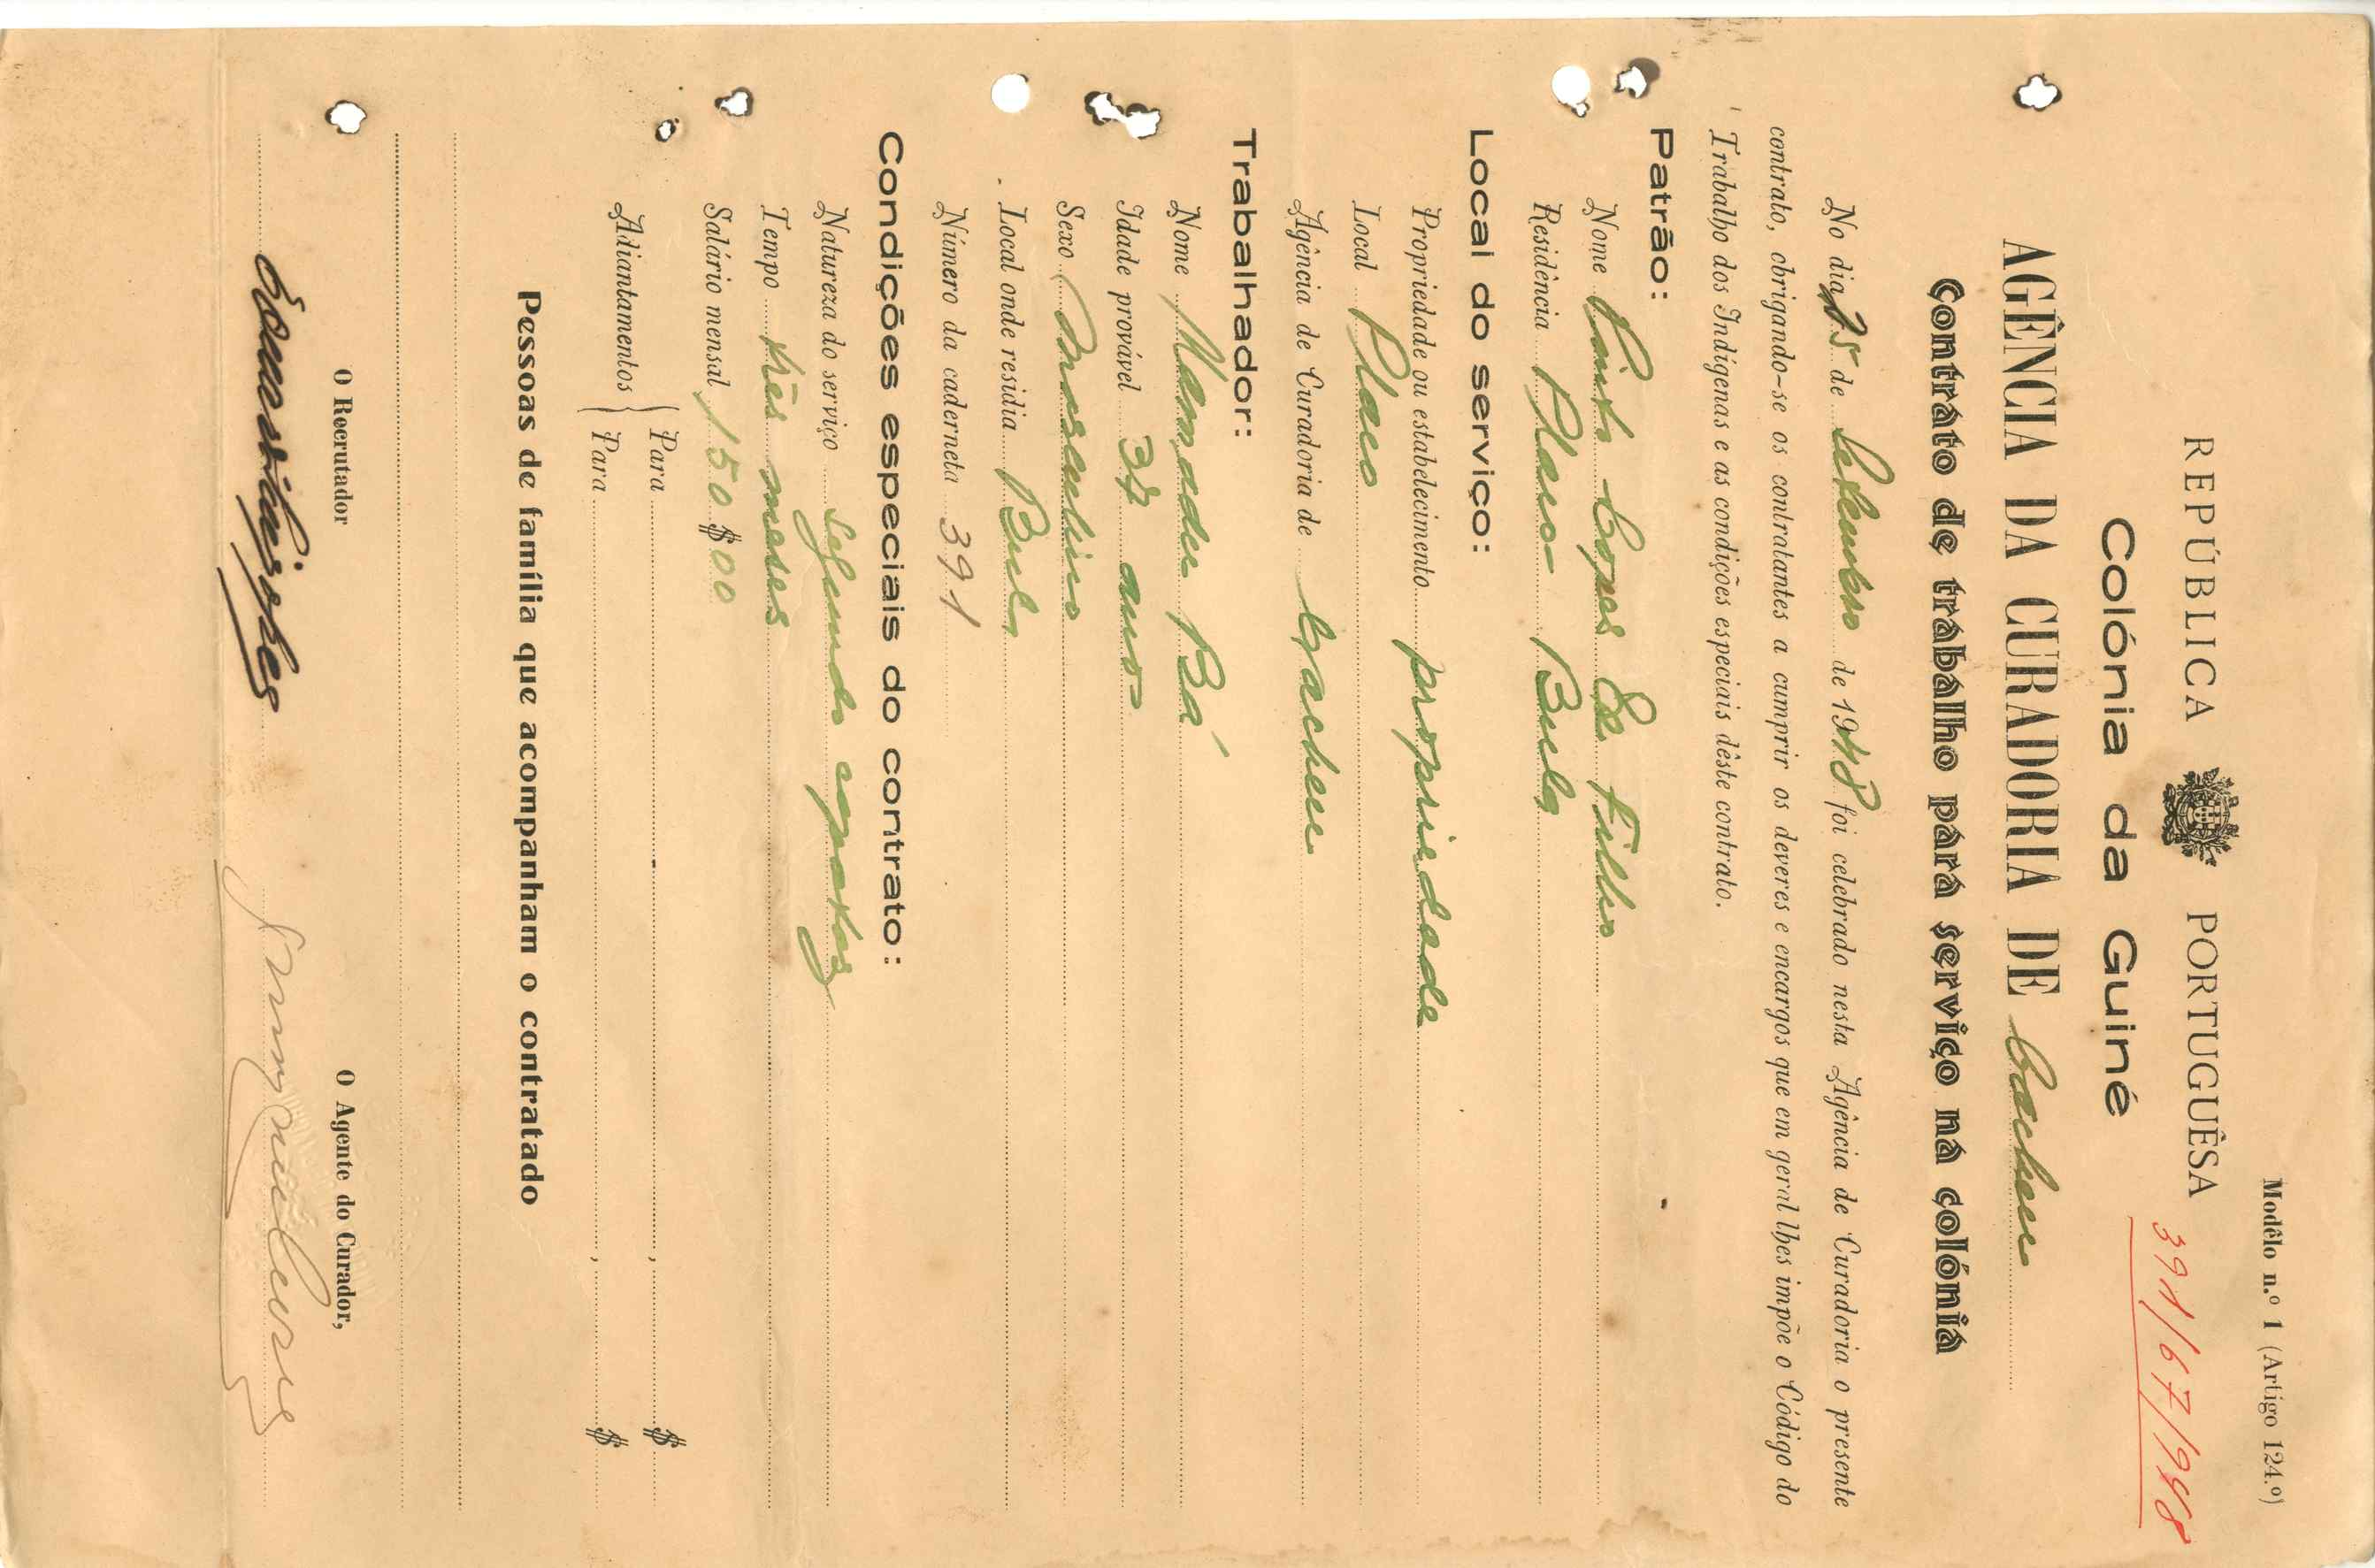 Modêlo n.º 1 (Artigo 124.º)
REPÚBLICA PORTUGUÊSA
391/67/948
Colónia da Guiné
AGÊNCIA DA CURADORIA DE Cacheu
Contrato de trabalho para serviço na colónia
No dia 15 de Setembro de 1948 foi celebrado nesta Agência de Curadoria o presente
contrato, obrigando-se os contratantes a cumprir os deveres e encargos que em geral lhes impõe o Código do
Trabalho dos Indígenas e as condições especiais dêste contrato.
Patrão:
Nome Pinto Lopes & Filho
Residência Placo Bula
Local do serviço:
Propriedade ou estabelecimento propriedade
Local Placo
Agência de Curadoria de Cacheu
Trabalhador:
Nome Mamadu Bá
Idade provável anos
Sexo Masculino
Local onde residia Bula
Número da caderneta 391
Condições especiais do contrato:
Natureza do serviço
Tempo três meses
Salário mensal 150$00
Adiantamentos { Para , $
Para , $
Pessoas de família que acompanham o contratado
O Recrutador
O Agente do Curador,